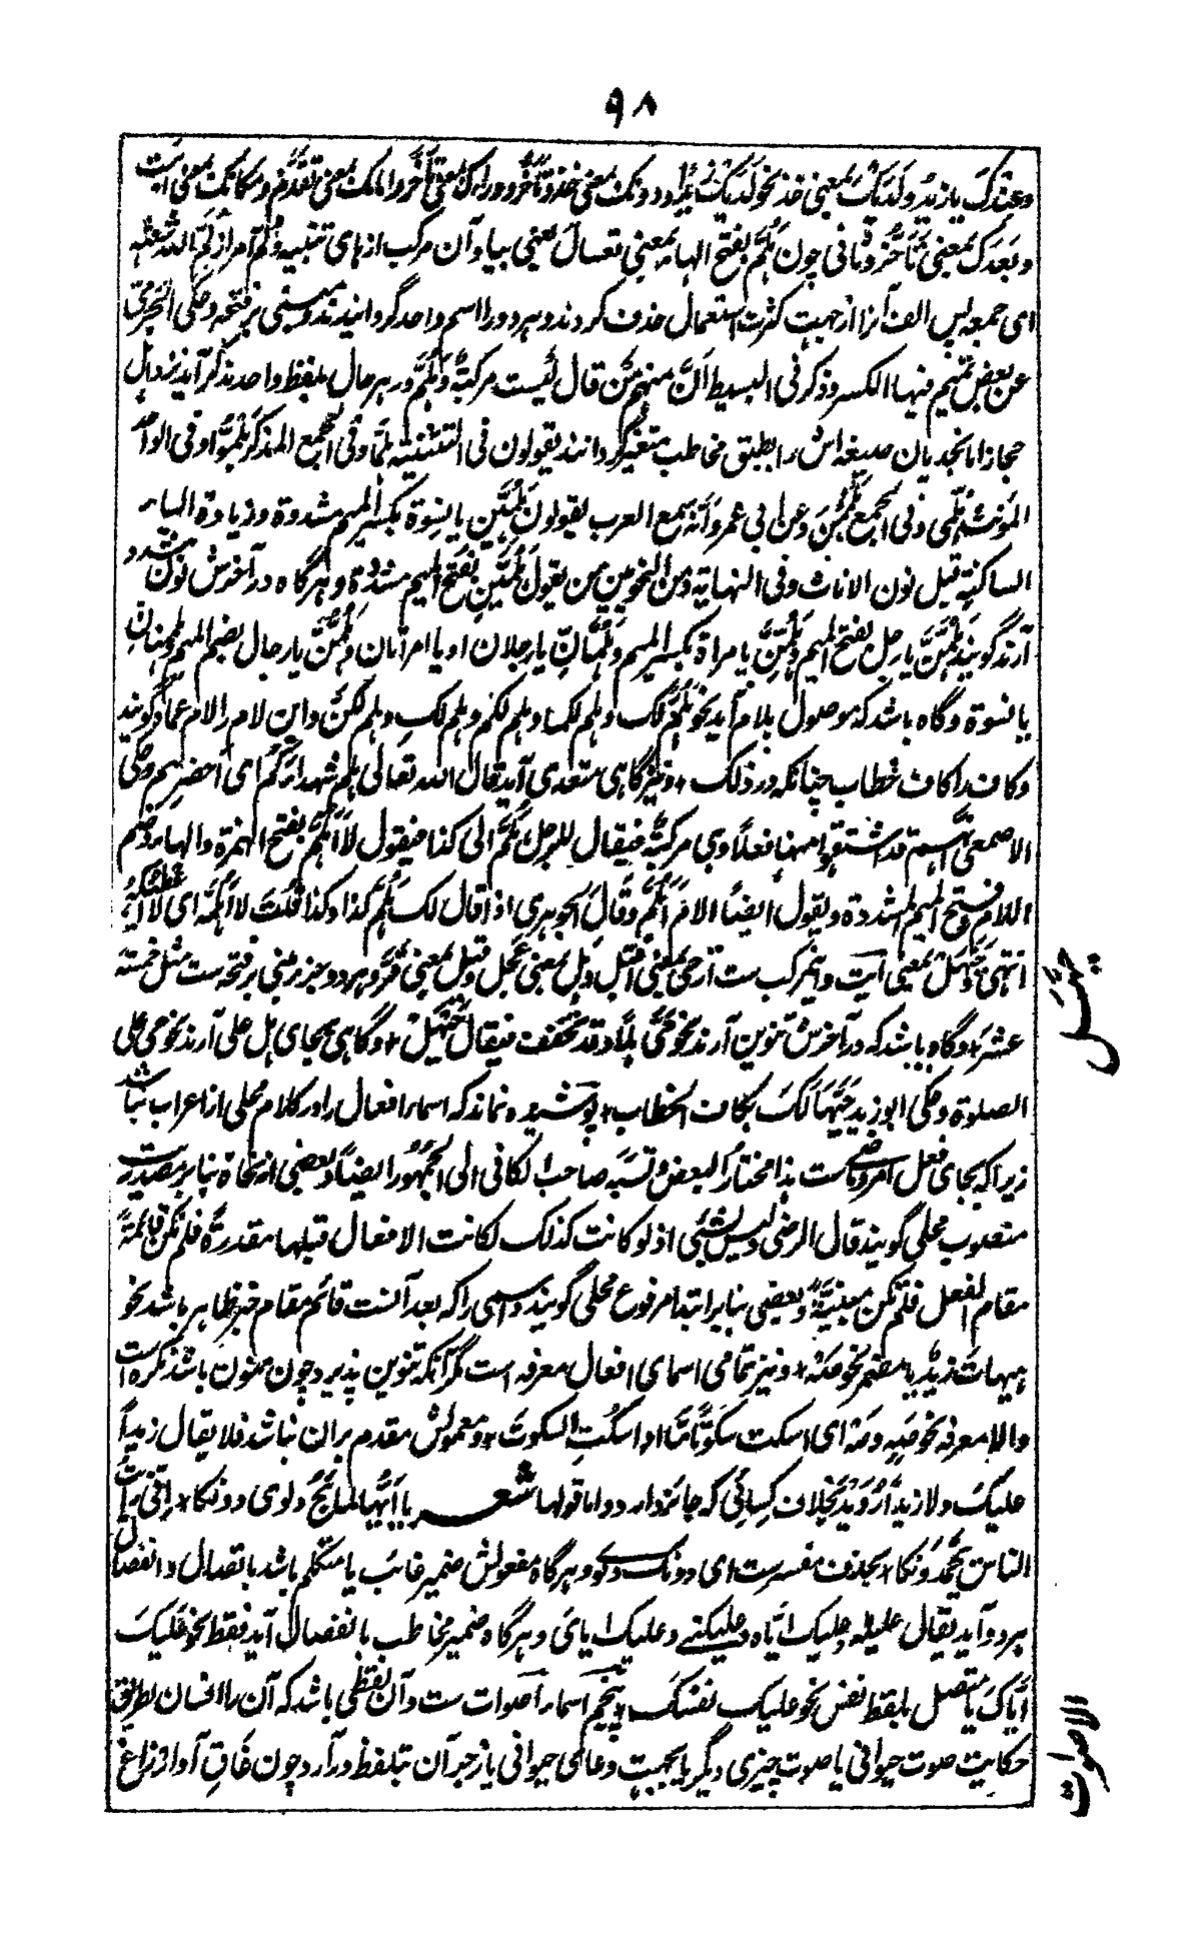 ۹۸
وعندک یا زید ولدیک بمعنی خذ نحو لدیک زیدا ودونک بمعنی خذ وتأخر ووراءک بمعنی تأخر وامامک بمعنی تقدم ومکانک بمعنی اثبت
وبعدک بمعنی تأخر وثانی چون هلم بفتح الهاء بمعنی تعال یعنی بیا وآن مرکب از های تنبیه ولم امر از لم الله شعثه
ای جمعه پس الف آنرا از جهت کثرت استعمال حذف کردند وهر دو را اسم واحد گردانیدند ومبنی بر فتحه وحکی الجرمی
عن بعض تمیم فیها الکسر وذکر فی البسیط ان منهم من قال لیست مرکبة وهلم در هر حال بلفظ واحد مذکر آید نزد اهل
حجاز اما نجدیان صیغه اش را بطبق مخاطب متغیر گردانند یقولون فی التثنیة هلما وفی الجمع المذکر هلموا وفی الواحد
المؤنث هلمی وفی الجمع هلممن وعن ابی عمرو انه سمع العرب یقولون هلمین یا نسوة بکسر المیم مشددة وزیادة الیاء
الساکنة قبل نون الاناث وفی النهایة ومن النحویین من یقول هلمین بفتح المیم مشددة وهرگاه در آخرش نون مشدد
آرند گویند هلمن یا رجل بفتح المیم وهلمن یا مراة بکسر المیم وهلمان یا رجلان او یا امرأتان وهلمن یا رجال بضم المیم وهلممنان
یا نسوة وگاه باشد که موصول بلام آید نحو هلم لک وهلم لکما وهلم لکم وهلم لکِ وهلم لکن واین لام را لام عماد گویند
وکاف را کاف خطاب چنانکه در ذلک ٭ ونیز گاهی متعدی آید قال الله تعالی هلم شهداءکم ای احضروهم وحکی
الاصمعی انهم قد اشتقوا منها فعلا وهی مرکبة فیقال للرجل هلم الی کذا فیقول لا اهلم بفتح الهمزة والهاء وضم
اللام وفتح المیم المشددة ویقول ایضا الام اهلم وقال الجوهری اذا قال لک هلم کذا وکذا قلت لا اهلمه ای لا اعطیکه
انتهی وحیهل بمعنی ایت واینمرکب ست از حی بمعنی اقبل وهل بمعنی عجل وقیل بمعنی قر وهر دو جزء مبنی بر فتحه ست مثل خمسة
عشر ٭ وگاه باشد که در آخرش تنوین آرند نحو حی هلا وقد تخفف فیقال حیهل ٭ وگاهی بجای هل علی آرند نحو حی علی
الصلوة وحکی ابو زید حیهالک بکاف الخطاب ٭ پوشیده نماند که اسماء افعال را در کلام محلی از اعراب نباشد
زیرا که بجای فعل امر وماضی ست هذا مختار البعض ونسبه صاحب الکافی الی الجمهور ایضا وبعضی از نحاة بنابر مصدریت
منصوب محلی گویند قال الرضی ولیس بشئ اذ لو کانت کذلک لکانت الافعال قبلها مقدرة فلم تکن قائمة
مقام الفعل فلم تکن مبنیة وبعضی بنابر ابتدا مرفوع محلی گویند واسمی را که بعد آنست قائم مقام خبر ظاهر باشد نحو
هیهات زید یا مضمر نحو مه ٭ ونیز تمامی اسمای افعال معرفه است مگر آنکه تنوین پذیرد چون منون باشد نکره است
والا معرفه نحو صه ومه ای اسکت سکوتا تاما او اسکت السکوت ٭ ومعمولش مقدم بر ان نباشد فلا یقال زیدا
علیک ولا زیدا روید بخلاف کسائی که جائز دارد واما قولها شعر یا ایها المائح دلوی دونکا ٭ انی رأیت
الناس یحمدونکا ٭ بحذف مفسر ست ای دونک دلوی وهرگاه مفعولش ضمیر غائب یا متکلم باشد باتصال وانفصال
هر دو آید یقال علیکه وعلیک ایاه وعلیکنی وعلیک ایای وهرگاه ضمیر مخاطب بانفصال آید فقط نحو علیک
ایاک یا متصل بلفظ نفس نحو علیک نفسک ٭ پنجم اسماء اصوات ست وآن لفظی باشد که آن را انسان بطریق
حکایت صوت حیوانی یا صوت چیزی دیگر یا بجهت دعای حیوانی یا زجر آن تلفظ در آرد چون غاق آواز زاغ
حیهل
الاصوات